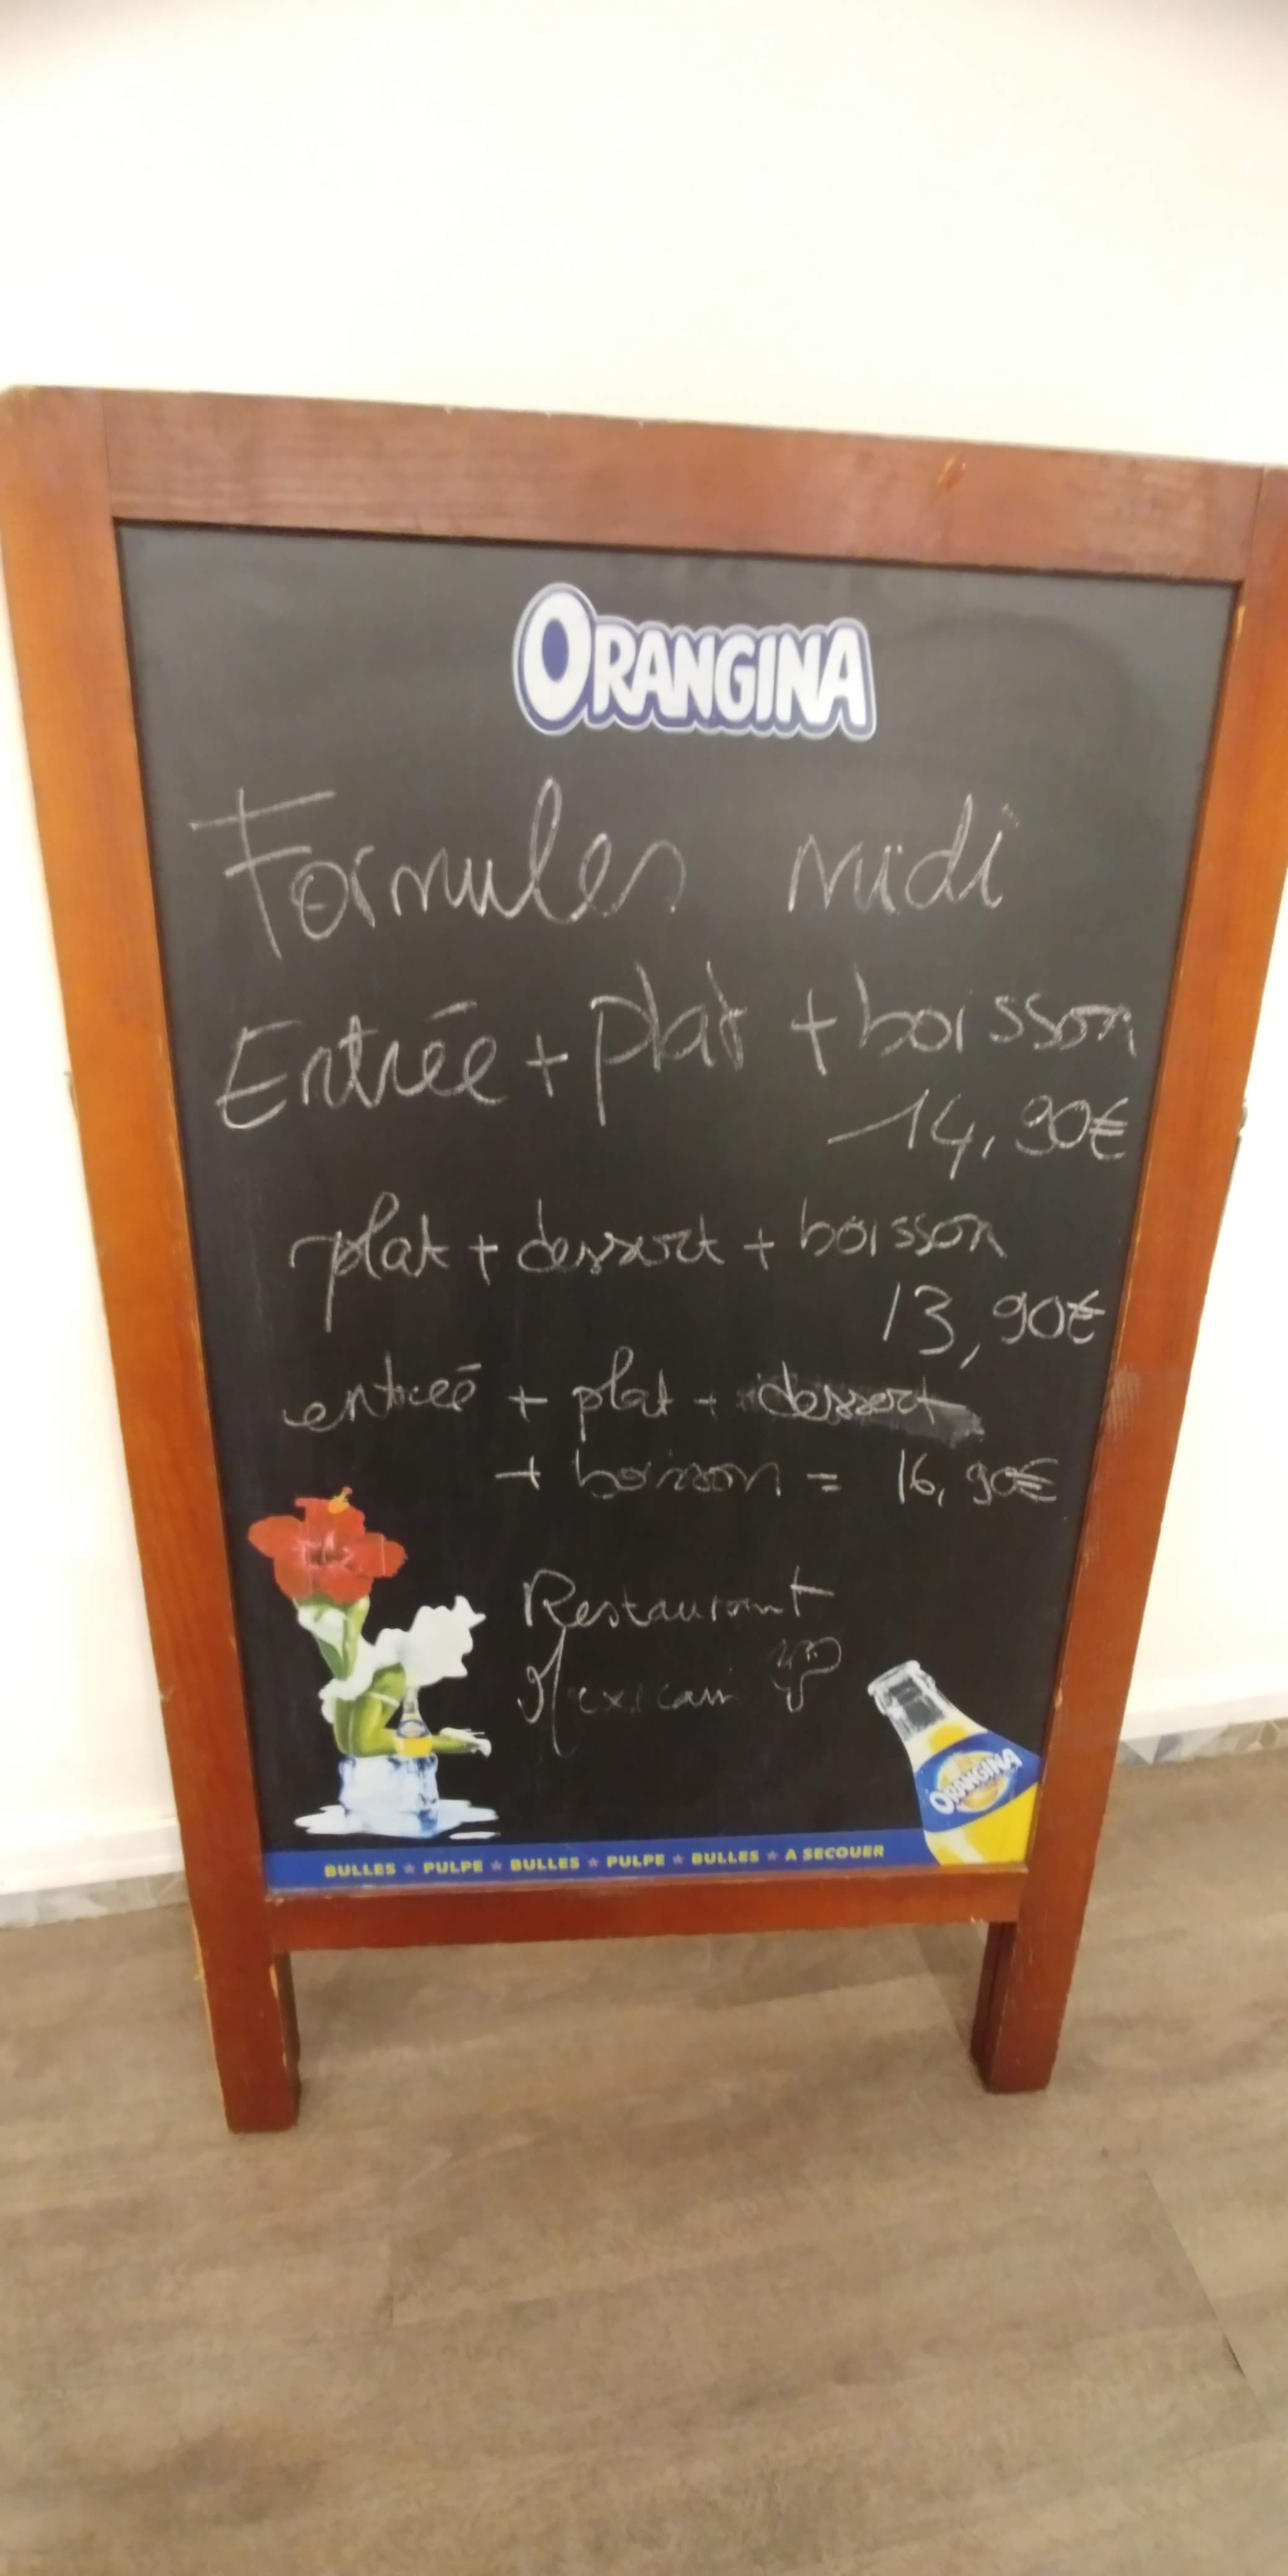 ORANGINA
Formules midi
Entrée + plat + boisson
14,90€
plat + dessert + boisson
13,90€
entrée + plat + dessert
+ boisson = 16,90€
Restaurant
Mexicain
ORANGINA
BULLES ★ PULPE ★ BULLES ★ PULPE ★ BULLES ★ A SECOUER